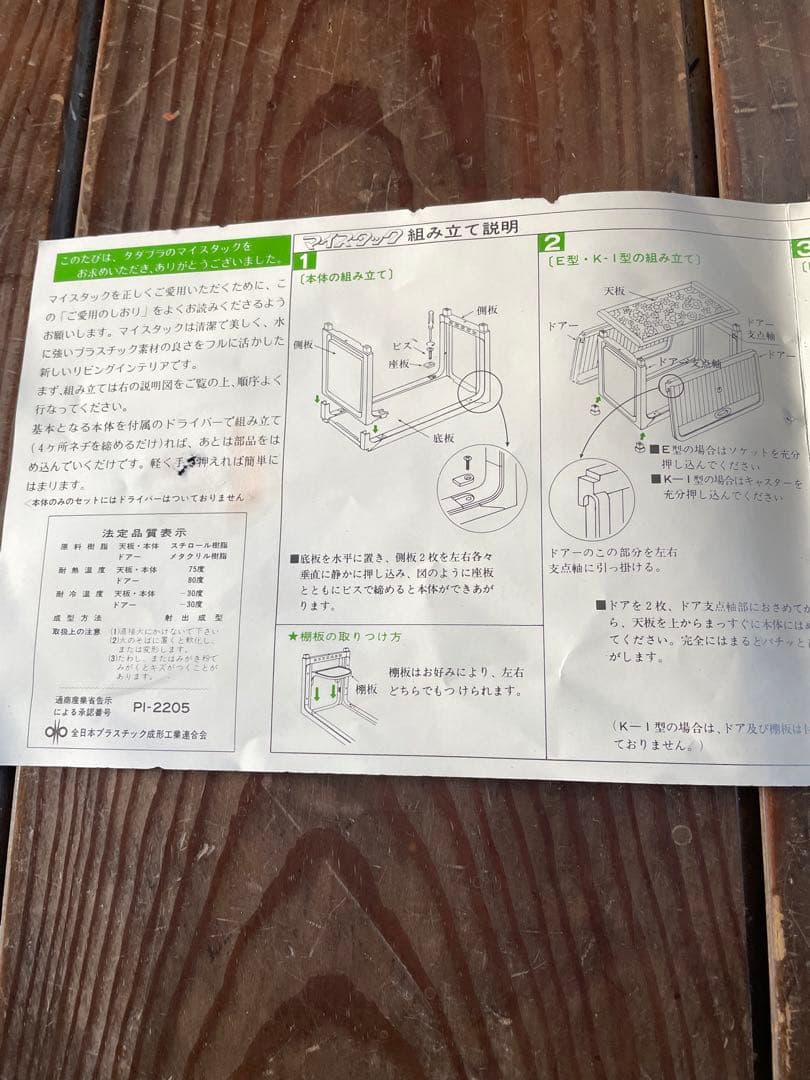 このたびは、タダプラのマイスタックを
お求めいただき、ありがとうございました。
マイスタックを正しくご愛用いただくために、こ
の「ご愛用のしおり」をよくお読みくださるよう
お願いします。マイスタックは清潔で美しく、水
に強いプラスチック素材の良さをフルに活かした
新しいリビングインテリアです。
まず、組み立ては右の説明図をご覧の上、順序よく
行なってください。
基本となる本体を付属のドライバーで組み立て
(4ヶ所ネヂを締めるだけ)れば、あとは部品をは
め込んでいくだけです。軽く手で押えれば簡単に
はまります。
<本体のみのセットにはドライバーはついておりません>
法定品質表示
原料樹脂 天板・本体 スチロール樹脂
ドアー メタクリル樹脂
耐熱温度 天板・本体 75度
ドアー 80度
耐冷温度 天板・本体 -30度
ドアー -30度
成型方法 射出成型
取扱上の注意 (1)直接火にかけないで下さい
(2)火のそばに置くと軟化し、
または変形します。
(3)たわし、またはみがき粉で
みがくとキズがつくことが
あります。
通商産業省告示
による承認番号 PI-2205
全日本プラスチック成形工業連合会
マイスタック 組み立て説明
1
〔本体の組み立て〕
側板
側板
ビス
座板
底板
■底板を水平に置き、側板2枚を左右各々
垂直に静かに押し込み、図のように座板
とともにビスで締めると本体ができあが
ります。
★棚板の取りつけ方
棚板
棚板はお好みにより、左右
どちらでもつけられます。
2
〔E型・K-I型の組み立て〕
天板
ドアー
ドアー
支点軸
ドアー支点軸
ドアー
■E型の場合はソケットを充分
押し込んでください
■K-I型の場合はキャスターを
充分押し込んでください
ドアーのこの部分を左右
支点軸に引っ掛ける。
■ドアを2枚、ドア支点軸部におさめてか
ら、天板を上からまっすぐに本体には
てください。完全にはまるとパチッと
がします。
(K-I型の場合は、ドア及び棚板は
ておりません。)
3